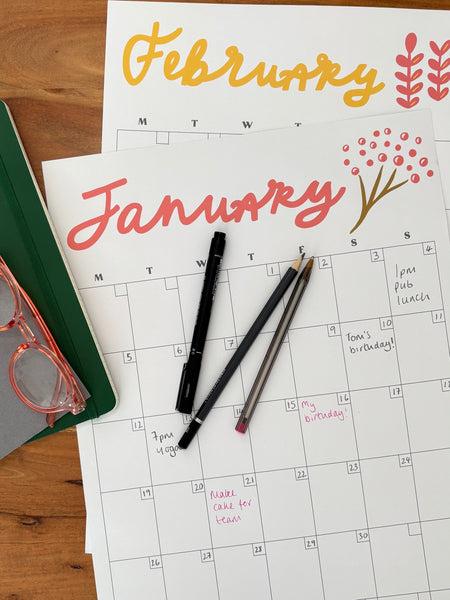 February
M T W T
January
M T W T F S S
1 2 3 4
1pm
pub
lunch
5 6 7 9 10 11
Tom's
birthday!
12 14 15 16 17
7pm
yoga
My
birthday!
19 20 21 22 23 24
Make
cake for
team
26 27 28 29 30